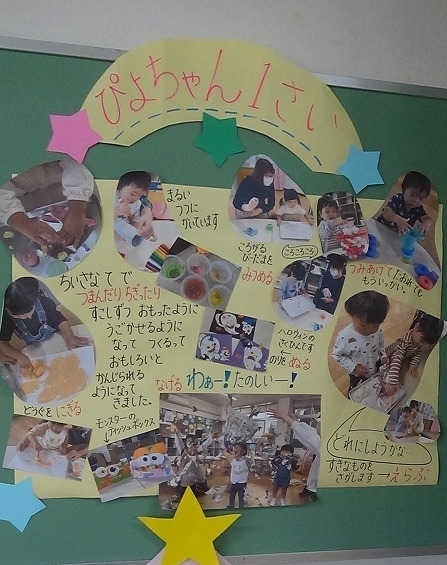 ぴよちゃん1さい
まるい
つつに
かいています
ころがる
びーだまを
みつめる
ころころころ
つみあげてたおれても
もういっかい
ちいさな て で
つまんだり、ちぎったり
すこしずつ おもったように
うごかせるように
なって つくるって
おもしろいと
かんじられる
ようになって
きました。
どうぐを にぎる
モンスターの
ティッシュボックス
ハロウィンの
さくひんです
のりをぬる
なげる わぁー!たのしいー!
どれにしようかな
すきなものを
さがします→えらぶ